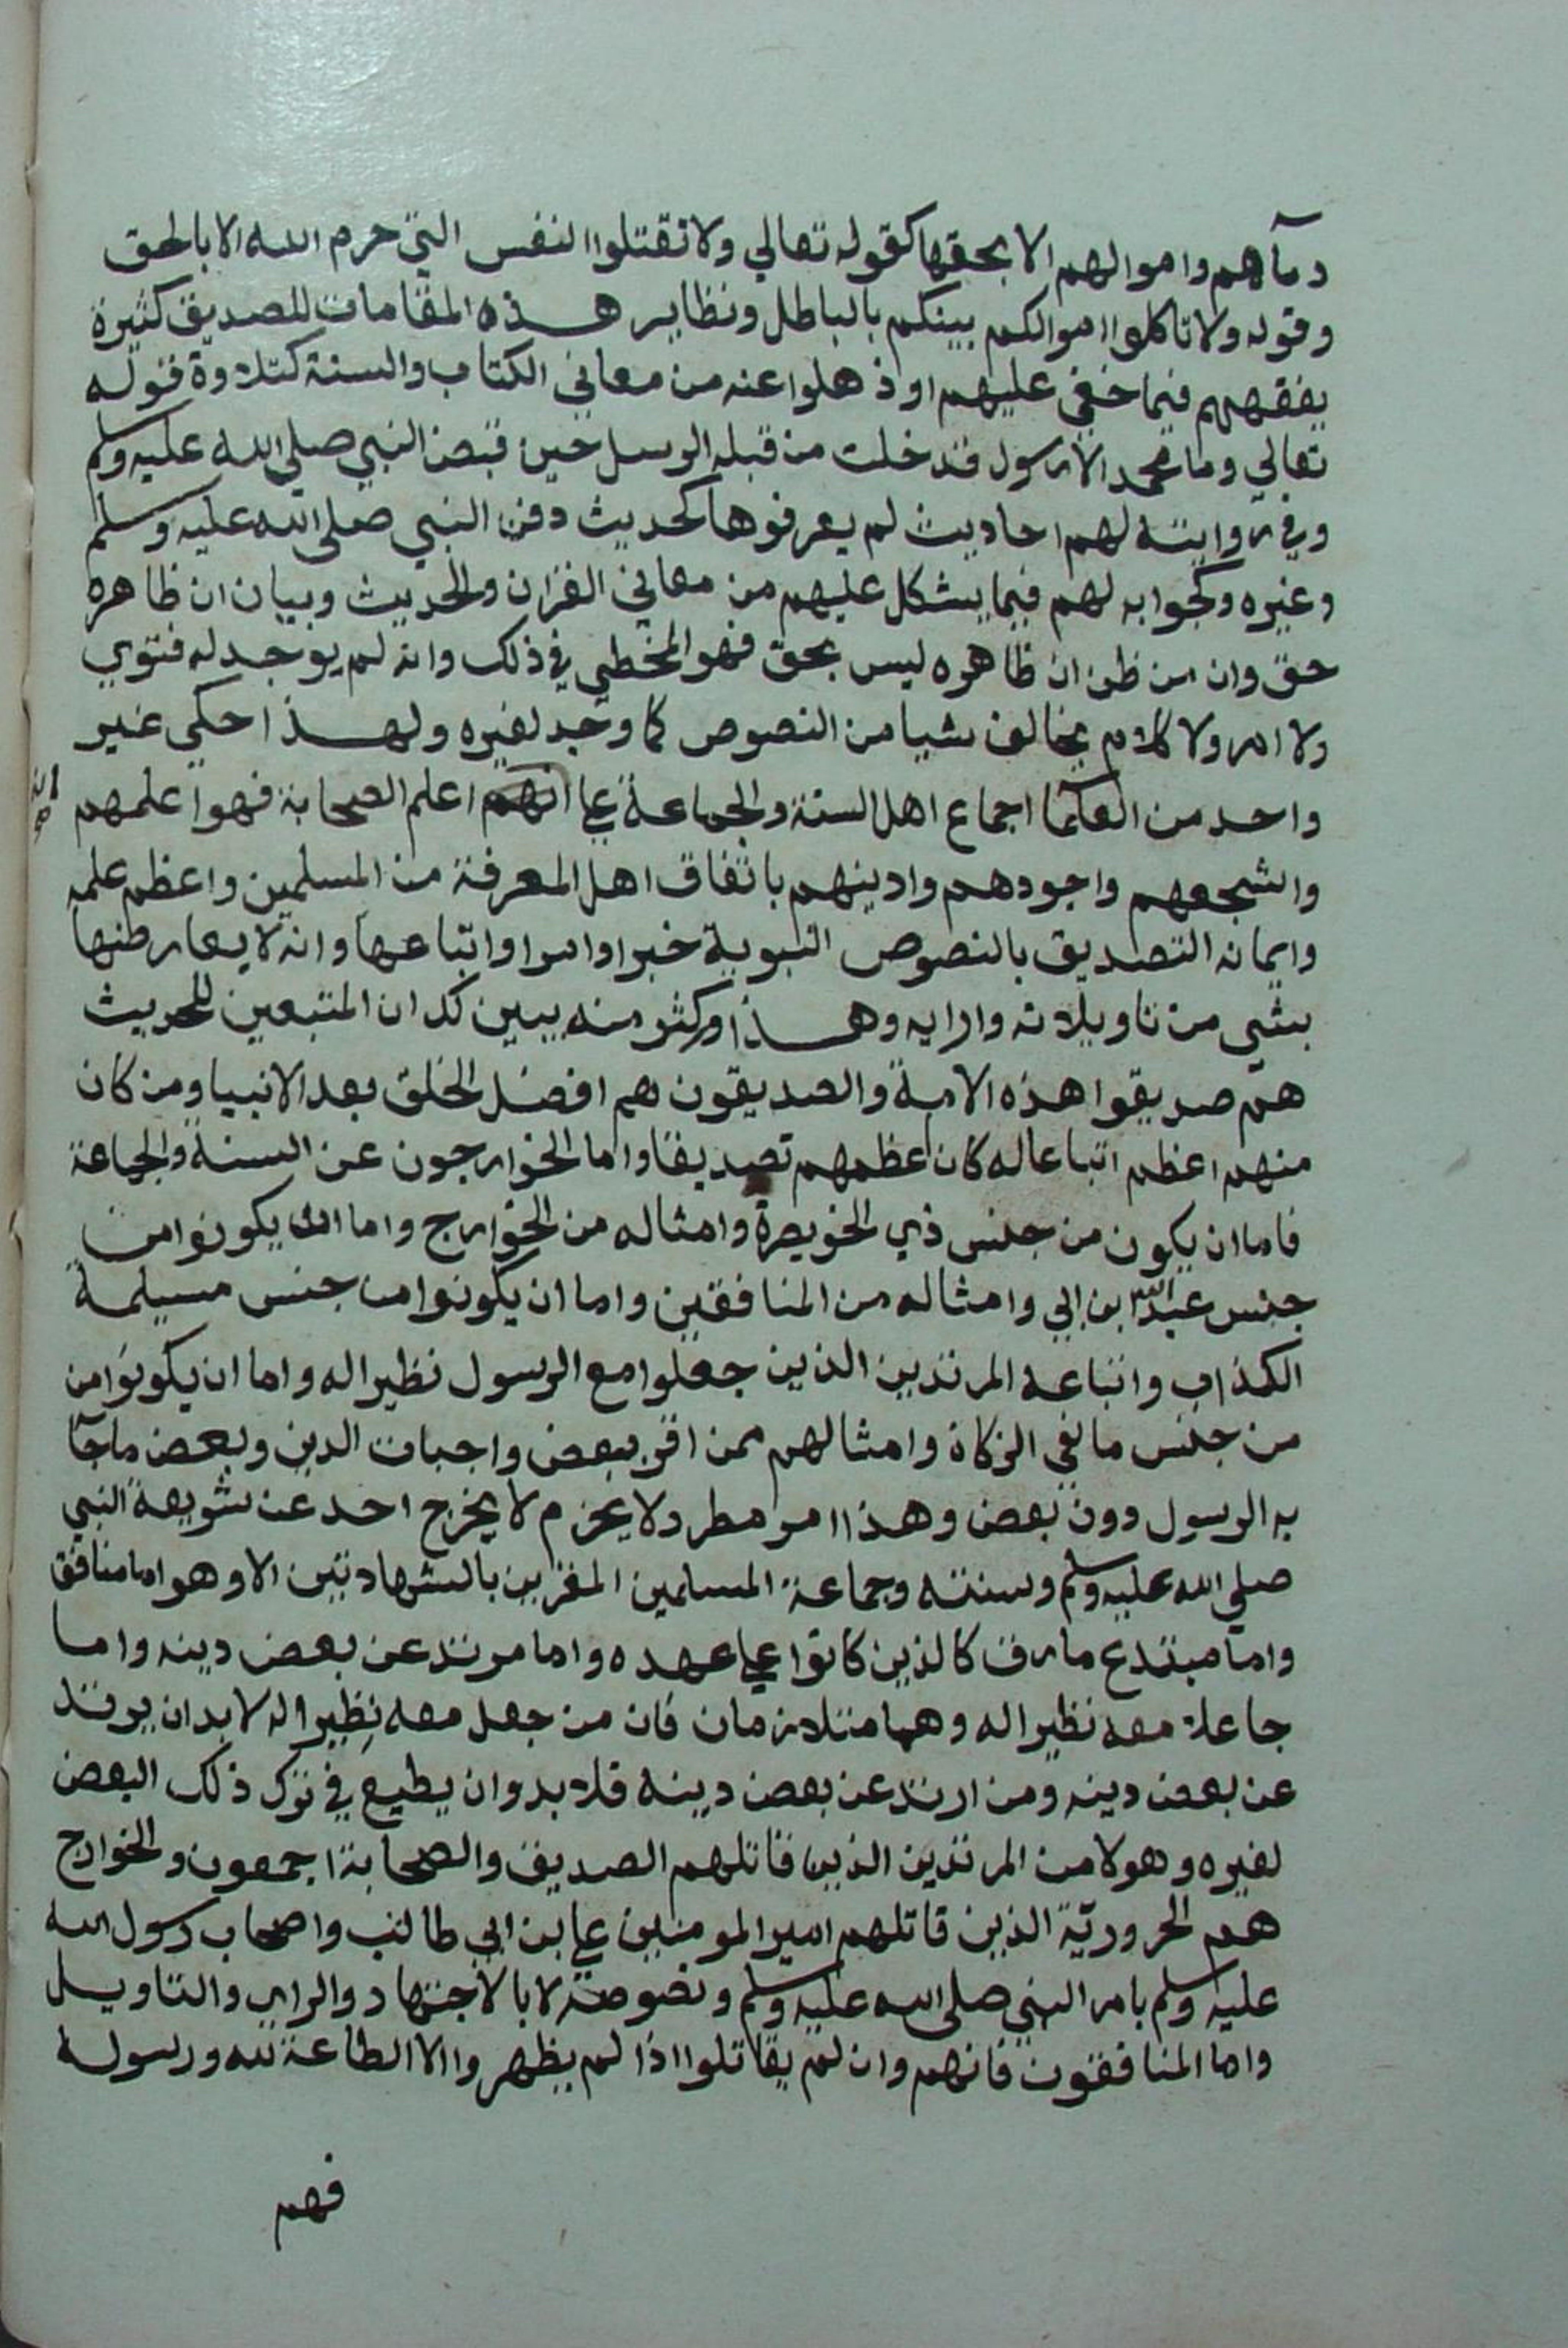 دمآهم واموالهم الا بحقها كقوله تعالي ولا تقتلوا النفس التي حرم الله الا بالحق
وقوله ولا تاكلوا اموالكم بينكم بالباطل ونظاير هذه المقامات للصديق كثيرة
يفقههم فيما خفي عليهم او ذهلوا عنه من معاني الكتاب والسنة كتلاوة قوله
تعالي وما محمد الا رسول قد خلت من قبله الرسل حين قبض النبي صلي الله عليه وسلم
وفي روايته لهم احاديث لم يعرفوها كحديث دفن النبي صلى الله عليه وسلم
وغيره وكجوابه لهم فيما يشكل عليهم من معاني القران والحديث وبيان ان ظاهره
حق وان من ظن ان ظاهره ليس بحق فهو المخطي في ذلك وانه لم يوجد له فتوي
ولا امر ولا كلام يخالف شيا من النصوص كما وجد لغيره ولهذا حكي غير
واحد من العلما اجماع اهل السنة والجماعة علي انهم اعلم الصحابة فهو اعلمهم
واشجعهم واجودهم وادينهم باتفاق اهل المعرفة من المسلمين واعظم علمه
وايمانه التصديق بالنصوص النبوية خبرا وامرا واتباعها وانه لا يعارضها
بشي من تاويلاته وارايه وهذا وكثر منه يبين لك ان المتبعين للحديث
هم صديقوا هذه الامة والصديقون هم افضل الخلق بعد الانبيا ومن كان
منهم اعظم اتباعا له كان اعظمهم تصديقا واما الخوارجون عن السنة والجماعة
فاما ان يكون من جنس ذي الخويصرة وامثاله من الخوارج واما ان يكونوا من
جنس عبد الله ابن ابي وامثاله من المنافقين واما ان يكونوا من جنس مسيلمة
الكذاب واتباعه المرتدين الذين جعلوا مع الرسول نظيرا له واما ان يكونوا من
من جنس مانعي الزكاة وامثالهم ممن اقر ببعض واجبات الدين وبعض ما جآ
به الرسول دون بعض وهذا امر مطرد لا يحزم لا يخرج احد عن شريعة النبي
صلي الله عليه وسلم وسنته وجماعة المسلمين المقرين بالشهادتين الا وهو اما منافق
واما مبتدع مارق كالذين كانوا علي عهده واما مرتد عن بعض دينه واما
جاعلا معه نظيرا له وهما متلازمان فان من جعل معه نظيرا له لا بد ان يرتد
عن بعض دينه ومن ارتد عن بعض دينه فلا بد وان يطيع في ترك ذلك البعض
لغيره وهولا من المرتدين الذين قاتلهم الصديق والصحابة اجمعون والخوارج
هم الحرورية الذين قاتلهم امير المومنين علي بن ابي طالب واصحاب رسول الله
عليه وسلم بامر النبي صلى الله عليه وسلم ونصوصه لا بالاجتهاد والراي والتاويل
واما المنافقون فانهم وان لم يقاتلوا اذا لم يظهروا الا الطاعة لله ورسوله
فهم